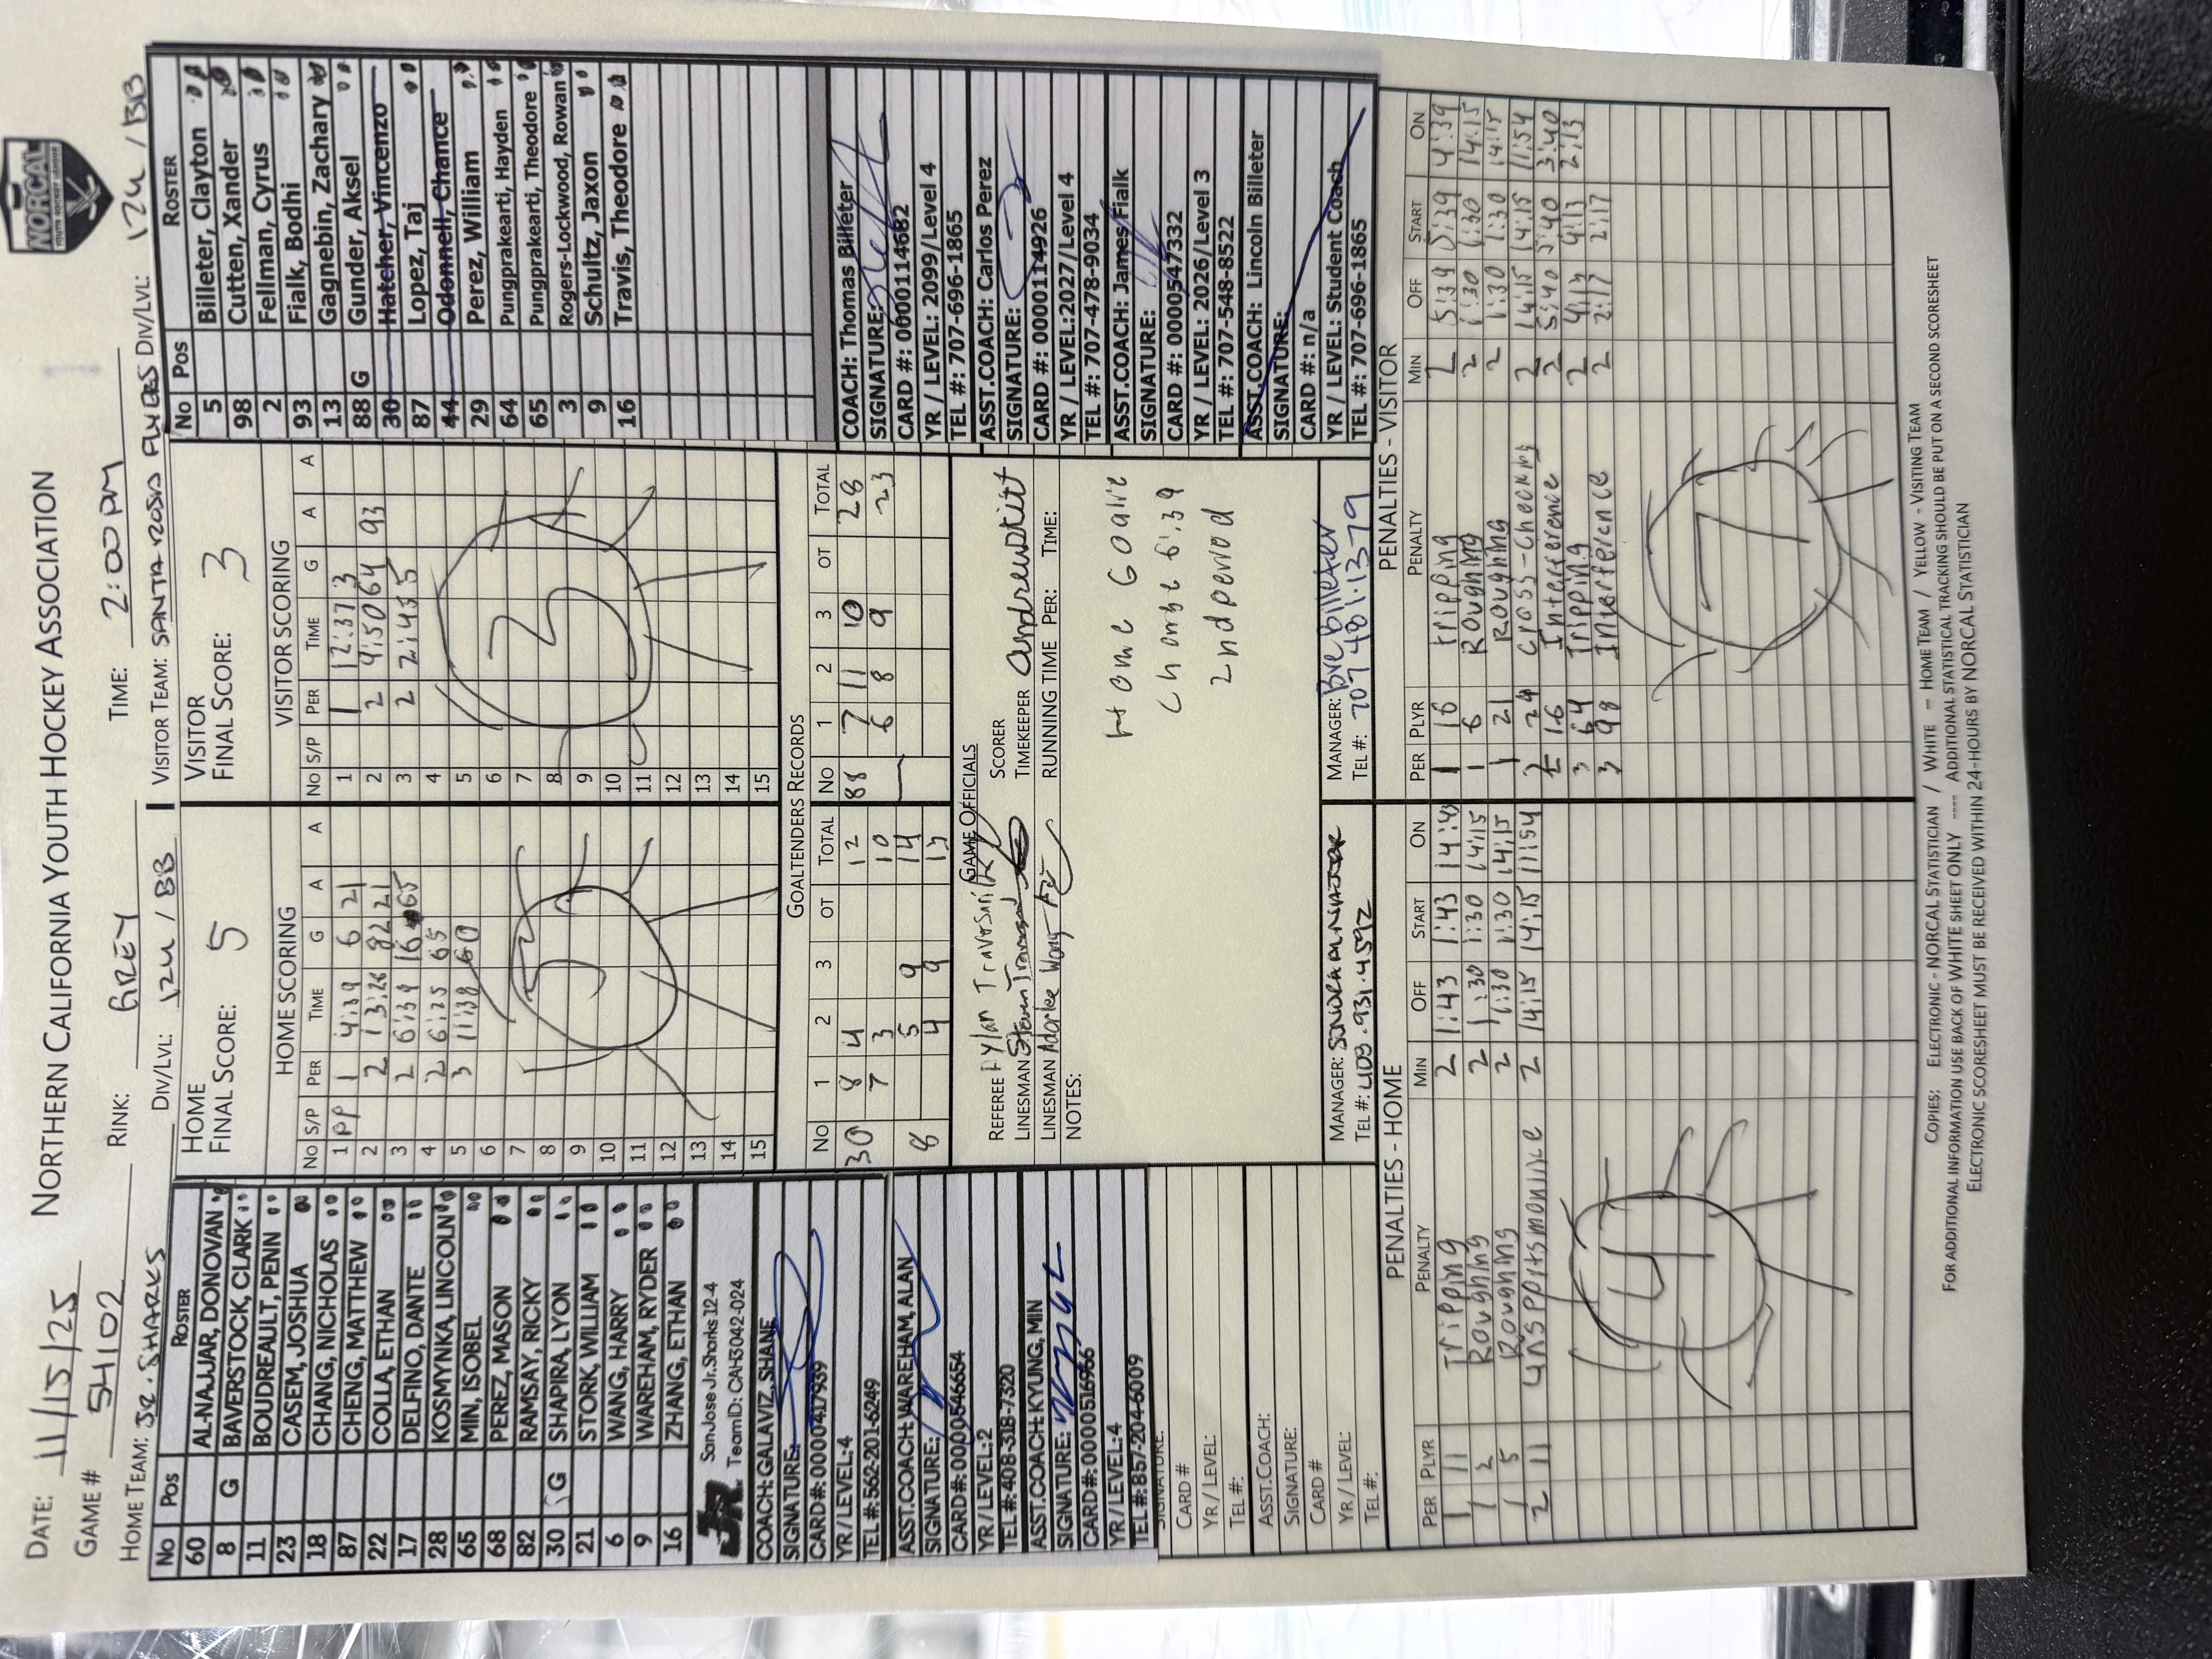 NORCAL
YOUTH HOCKEY LEAGUE
NORTHERN CALIFORNIA YOUTH HOCKEY ASSOCIATION
DATE: 11/15/25
GAME # 54102 RINK: GREY TIME: 2:00 PM
HOME TEAM: JR. SHARKS DIV/LVL: 12U / BB VISITOR TEAM: SANTA ROSA FLYERS DIV/LVL: 12U / BB
No Pos ROSTER
60 AL-NAJJAR, DONOVAN
8 G BAVERSTOCK, CLARK
11 BOUDREAULT, PENN
23 CASEM, JOSHUA
18 CHANG, NICHOLAS
87 CHENG, MATTHEW
22 COLLA, ETHAN
17 DELFINO, DANTE
28 KOSMYNKA, LINCOLN
65 MIN, ISOBEL
68 PEREZ, MASON
82 RAMSAY, RICKY
30 G SHAPIRA, LYON
21 STORK, WILLIAM
6 WANG, HARRY
9 WAREHAM, RYDER
16 ZHANG, ETHAN
JR
San Jose Jr. Sharks 12-4
Team ID: CAH3042-024
COACH: GALAVIZ, SHANE
SIGNATURE:
CARD#: 0000141793
YR/LEVEL: 4
TEL #: 562-201-6249
ASST.COACH: WAREHAM, ALAN
SIGNATURE:
CARD#: 0000546654
YR/LEVEL: 2
TEL #: 408-318-7320
ASST.COACH: KYUNG, MIN
SIGNATURE:
CARD#: 0000516966
YR/LEVEL: 4
TEL #: 857-204-6009
SIGNATURE:
CARD #
YR / LEVEL:
TEL #:
ASST.COACH:
SIGNATURE:
CARD #
YR / LEVEL:
TEL #:
HOME
FINAL SCORE: 5
HOME SCORING
No S/P PER TIME G A A
1 PP 1 4:39 6 21
2 2 13:28 82 21
3 2 6:39 16 65
4 2 6:25 65
5 3 11:38 60
6
7
8
9
10
11
12
13
14
15
5
VISITOR
FINAL SCORE: 3
VISITOR SCORING
No S/P PER TIME G A A
1 1 12:37 3
2 2 9:50 64 93
3 2 2:45 5
4
5
6
7
8
9
10
11
12
13
14
15
3
GOALTENDERS RECORDS
No 1 2 3 OT TOTAL No 1 2 3 OT TOTAL
30 8 4 12 88 7 11 10 28
7 3 10 6 8 9 23
8 5 9 14
4 9 13
GAME OFFICIALS
REFEREE Dylan SCORER
LINESMAN TIMEKEEPER
LINESMAN RUNNING TIME PER: TIME:
NOTES:
Home Goalie
Change 6:39
2nd period
MANAGER:
TEL #: 408.931.4592
MANAGER: Bre Billeter
TEL #: 707 481.1379
No Pos ROSTER
5 Billeter, Clayton
98 Cutten, Xander
2 Fellman, Cyrus
93 Fialk, Bodhi
13 Gagnebin, Zachary
88 G Gunder, Aksel
30 Hatcher, Vincenzo
87 Lopez, Taj
44 Odonnell, Chance
29 Perez, William
64 Pungprakearti, Hayden
65 Pungprakearti, Theodore
3 Rogers-Lockwood, Rowan
9 Schultz, Jaxon
16 Travis, Theodore
COACH: Thomas Billeter
SIGNATURE:
CARD #: 0000114682
YR / LEVEL: 2099/Level 4
TEL #: 707-696-1865
ASST.COACH: Carlos Perez
SIGNATURE:
CARD #: 0000114926
YR / LEVEL:2027/Level 4
TEL #: 707-478-9034
ASST.COACH: James Fialk
SIGNATURE:
CARD #: 0000547332
YR / LEVEL: 2026/Level 3
TEL #: 707-548-8522
ASST.COACH: Lincoln Billeter
SIGNATURE:
CARD #: n/a
YR / LEVEL: Student Coach
TEL #: 707-696-1865
PENALTIES - HOME
PER PLYR PENALTY MIN OFF START ON
1 11 Tripping 2 1:43 1:43 14:43
1 2 Roughing 2 1:30 1:30 14:15
1 5 Roughing 2 1:30 1:30 14:15
2 11 unspportsmanlike 2 14:15 14:15 11:54
4
PENALTIES - VISITOR
PER PLYR PENALTY MIN OFF START ON
1 16 tripping 2 5:39 5:39 4:39
1 6 Roughing 2 1:30 1:30 14:15
1 21 Roughing 2 1:30 1:30 14:15
2 24 Cross-Checking 2 14:15 14:15 11:54
2 16 Interference 2 5:40 5:40 3:40
3 64 Tripping 2 4:13 4:13 2:13
3 98 Interference 2 2:17 2:17
7
COPIES: ELECTRONIC - NORCAL STATISTICIAN / WHITE – HOME TEAM / YELLOW - VISITING TEAM
FOR ADDITIONAL INFORMATION USE BACK OF WHITE SHEET ONLY ---- ADDITIONAL STATISTICAL TRACKING SHOULD BE PUT ON A SECOND SCORESHEET
ELECTRONIC SCORESHEET MUST BE RECEIVED WITHIN 24-HOURS BY NORCAL STATISTICIAN